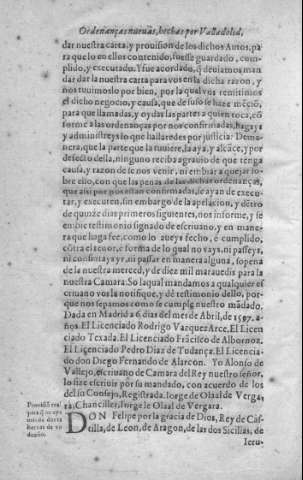 Ordenanças nueuas, hechas por Valladolid,
dar nuestra carta, y prouision de los dichos Autos, pa
ra que lo en ellos contenido, fuesse guardado, cum-
plido, y executado. Y fue acordado, q̃ deuiamos man
dar dar la nuestra carta para vos en la dicha razon, y
nos tuuimoslo por bien, por la qual vos remitimos
el dicho negocio, y causa, que de suso se haze mẽciõ,
para que llamadas, y oydas las partes a quien toca, cõ
forme a las ordenanças por nos confirmadas, hagays
y administreys lo que hallaredes por justicia: De ma-
nera, que la parte que la tuuiere, la aya, y alcãce, y por
defecto della, ninguno reciba agrauio de que tenga
causa, y razon de se nos venir, ni embiar a quexar so-
bre ello, con que las penas de las dichas ordenanças,
que assi por nos estan confirmadas, se ayan de execu-
tar, y executen, sin embargo de la apelacion, y dẽtro
de quinze dias primeros siguientes, nos informe, y se
embie testimonio signado de escriuano, y en mane-
ra que haga fee, como lo aueys fecho, e cumplido,
cõtra el tenor, e forma de lo qual no vays, ni passeys,
ni consintays yr, ni passar en manera alguna, so pena
de la nuestra merced, y de diez mil marauedis para la
nuestra Camara: So la qual mandamos a qualquier es
criuano vos la notifique, y dè testimonio dello, por-
que nos sepamos como se cumple nuestro mãdado,
Dada en Madrid a 6. dias del mes de Abril, de 1597. a-
ños. El Licenciado Rodrigo Vazquez Arce, El Licen
ciado Texada. El Licenciado Frãcisco de Albornoz.
El Liçenciado Pedro Diaz de Tudanca. El Licencia-
do don Diego Fernando de Alarcon. Yo Alonso de
Vallejo, escriuano de Camara del Rey nuestro señor,
lo fize escriuir por su mandado, con acuerdo de los
del su Consejo, Registrada. Iorge de Olaal de Verga-
ra, Chanciller, Iorge le Olaal de Vergara.
DON Felipe por la gracia de Dios, Rey de Cas-
tilla, de Leon, de Aragon, de las dos Sicilias, de
Ieru-